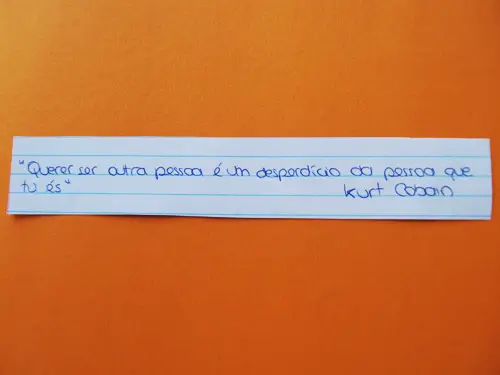 "Querer ser outra pessoa é um desperdício da pessoa que
tu és"
Kurt Cobain